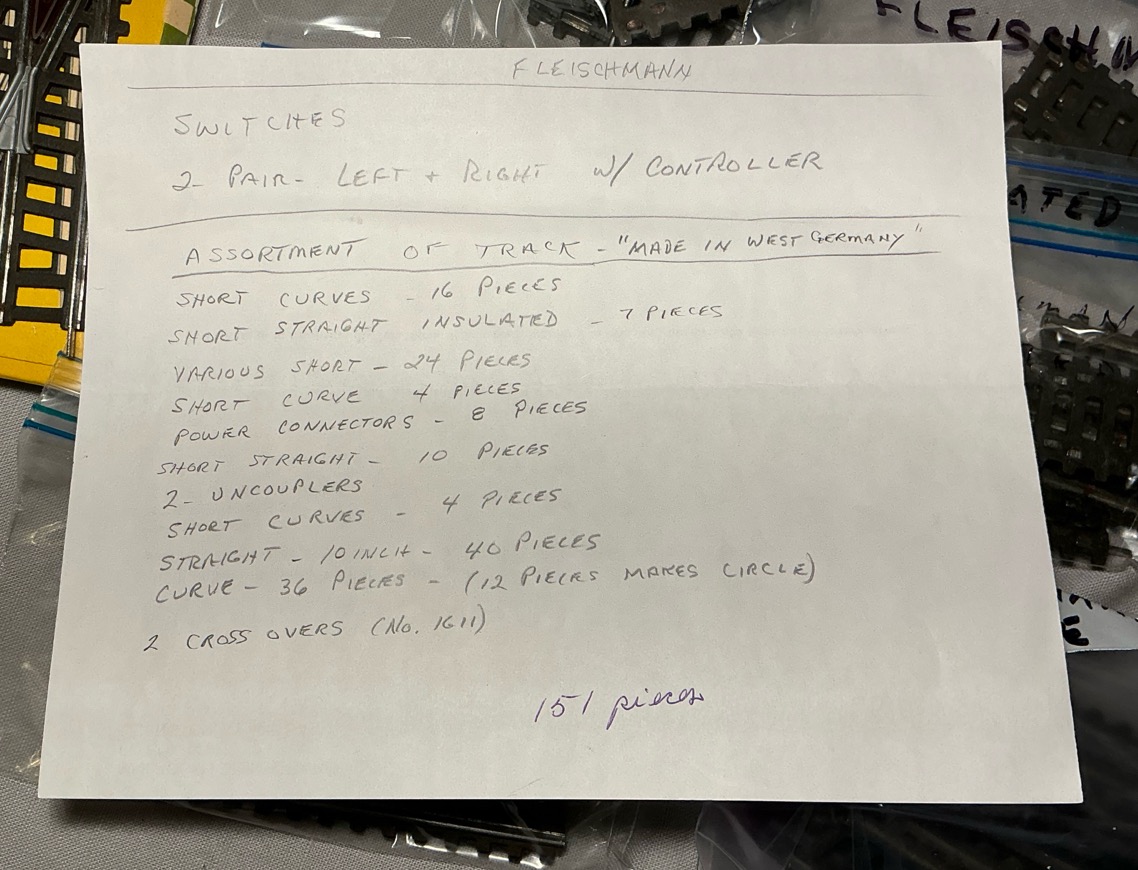 FLEISCHM
FLEISCHMANN
SWITCHES
2- PAIR- LEFT + RIGHT W/ CONTROLLER
ATED
ASSORTMENT OF TRACK - "MADE IN WEST GERMANY"
SHORT CURVES - 16 PIECES
SHORT STRAIGHT INSULATED - 7 PIECES
VARIOUS SHORT - 24 PIECES
SHORT CURVE 4 PIECES
POWER CONNECTORS - 8 PIECES
SHORT STRAIGHT - 10 PIECES
2- UNCOUPLERS
SHORT CURVES - 4 PIECES
STRAIGHT - 10 INCH - 40 PIECES
CURVE - 36 PIECES - (12 PIECES MAKES CIRCLE)
2 CROSS OVERS (No. 1611)
151 pieces